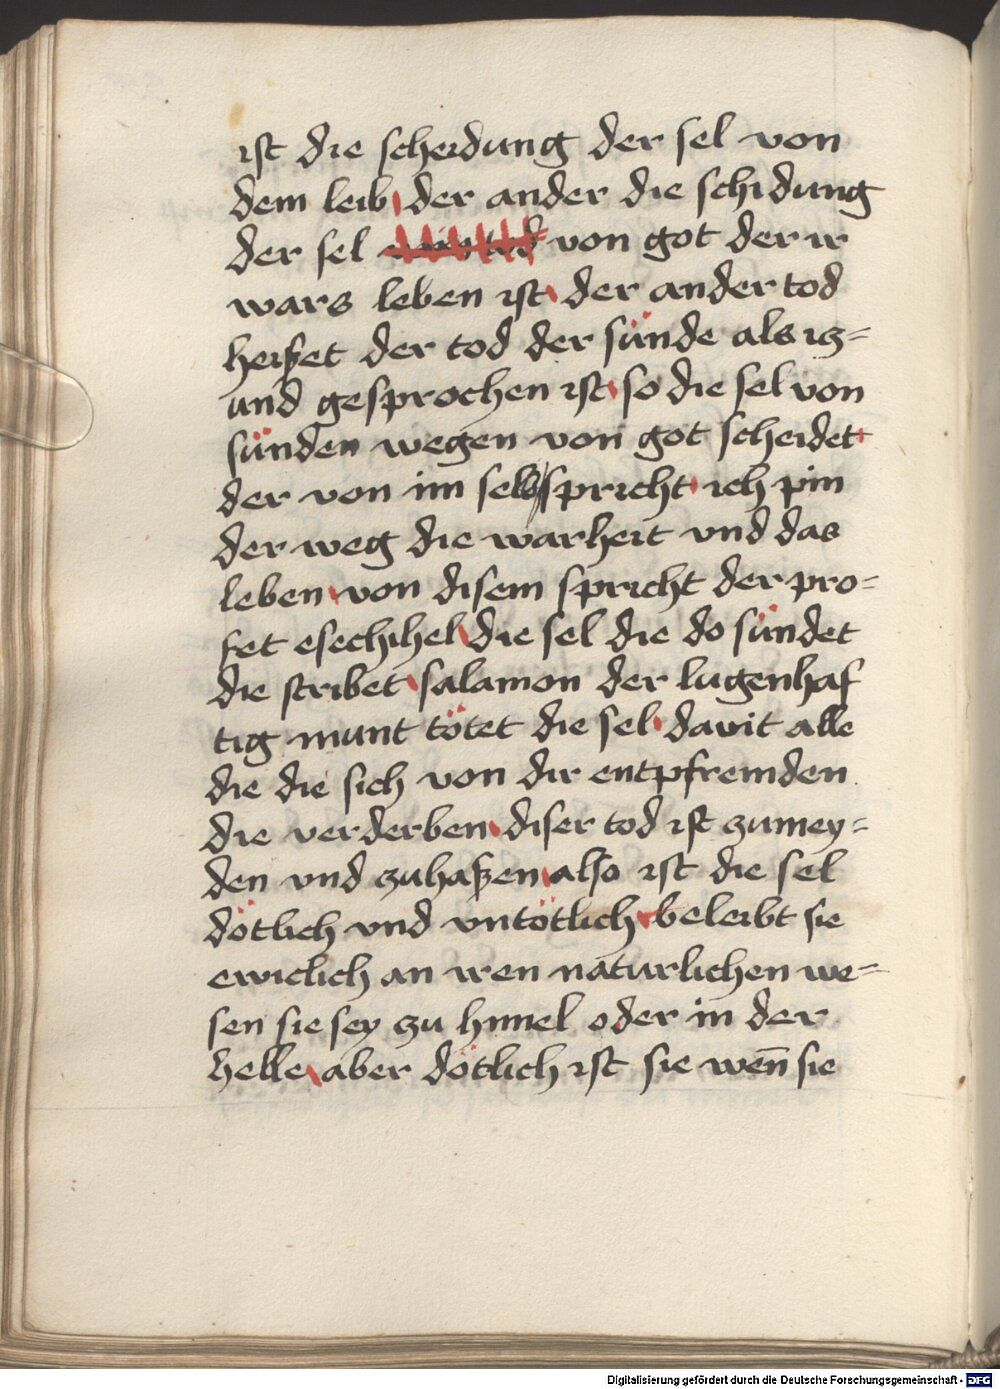 ist die scheidung der sel von
dem leib der ander die schidung
der sel von got der ir
wars leben ist der ander tod
heisset der tod der sünde als iz=
und gesprochen ist so die sel von
sünden wegen von got scheidet
der von im selbs spricht ich pin
der weg die warheit vnd das
leben von disem spricht der pro=
fet esechihel die sel die do sündet
die stribet salamon der lugenhaf
tig munt tötet die sel dauit alle
die die sich von dir entpfremden
die verderben diser tod ist zumey=
den vnd zuhaßen also ist die sel
dötlich vnd vntötlich beleibt sie
ewiclich an iren naturlichen we=
sen sie sey zu himel oder in der
helle aber dötlich ist sie wen̄ sie
Digitalisierung gefördert durch die Deutsche Forschungsgemeinschaft - DFG